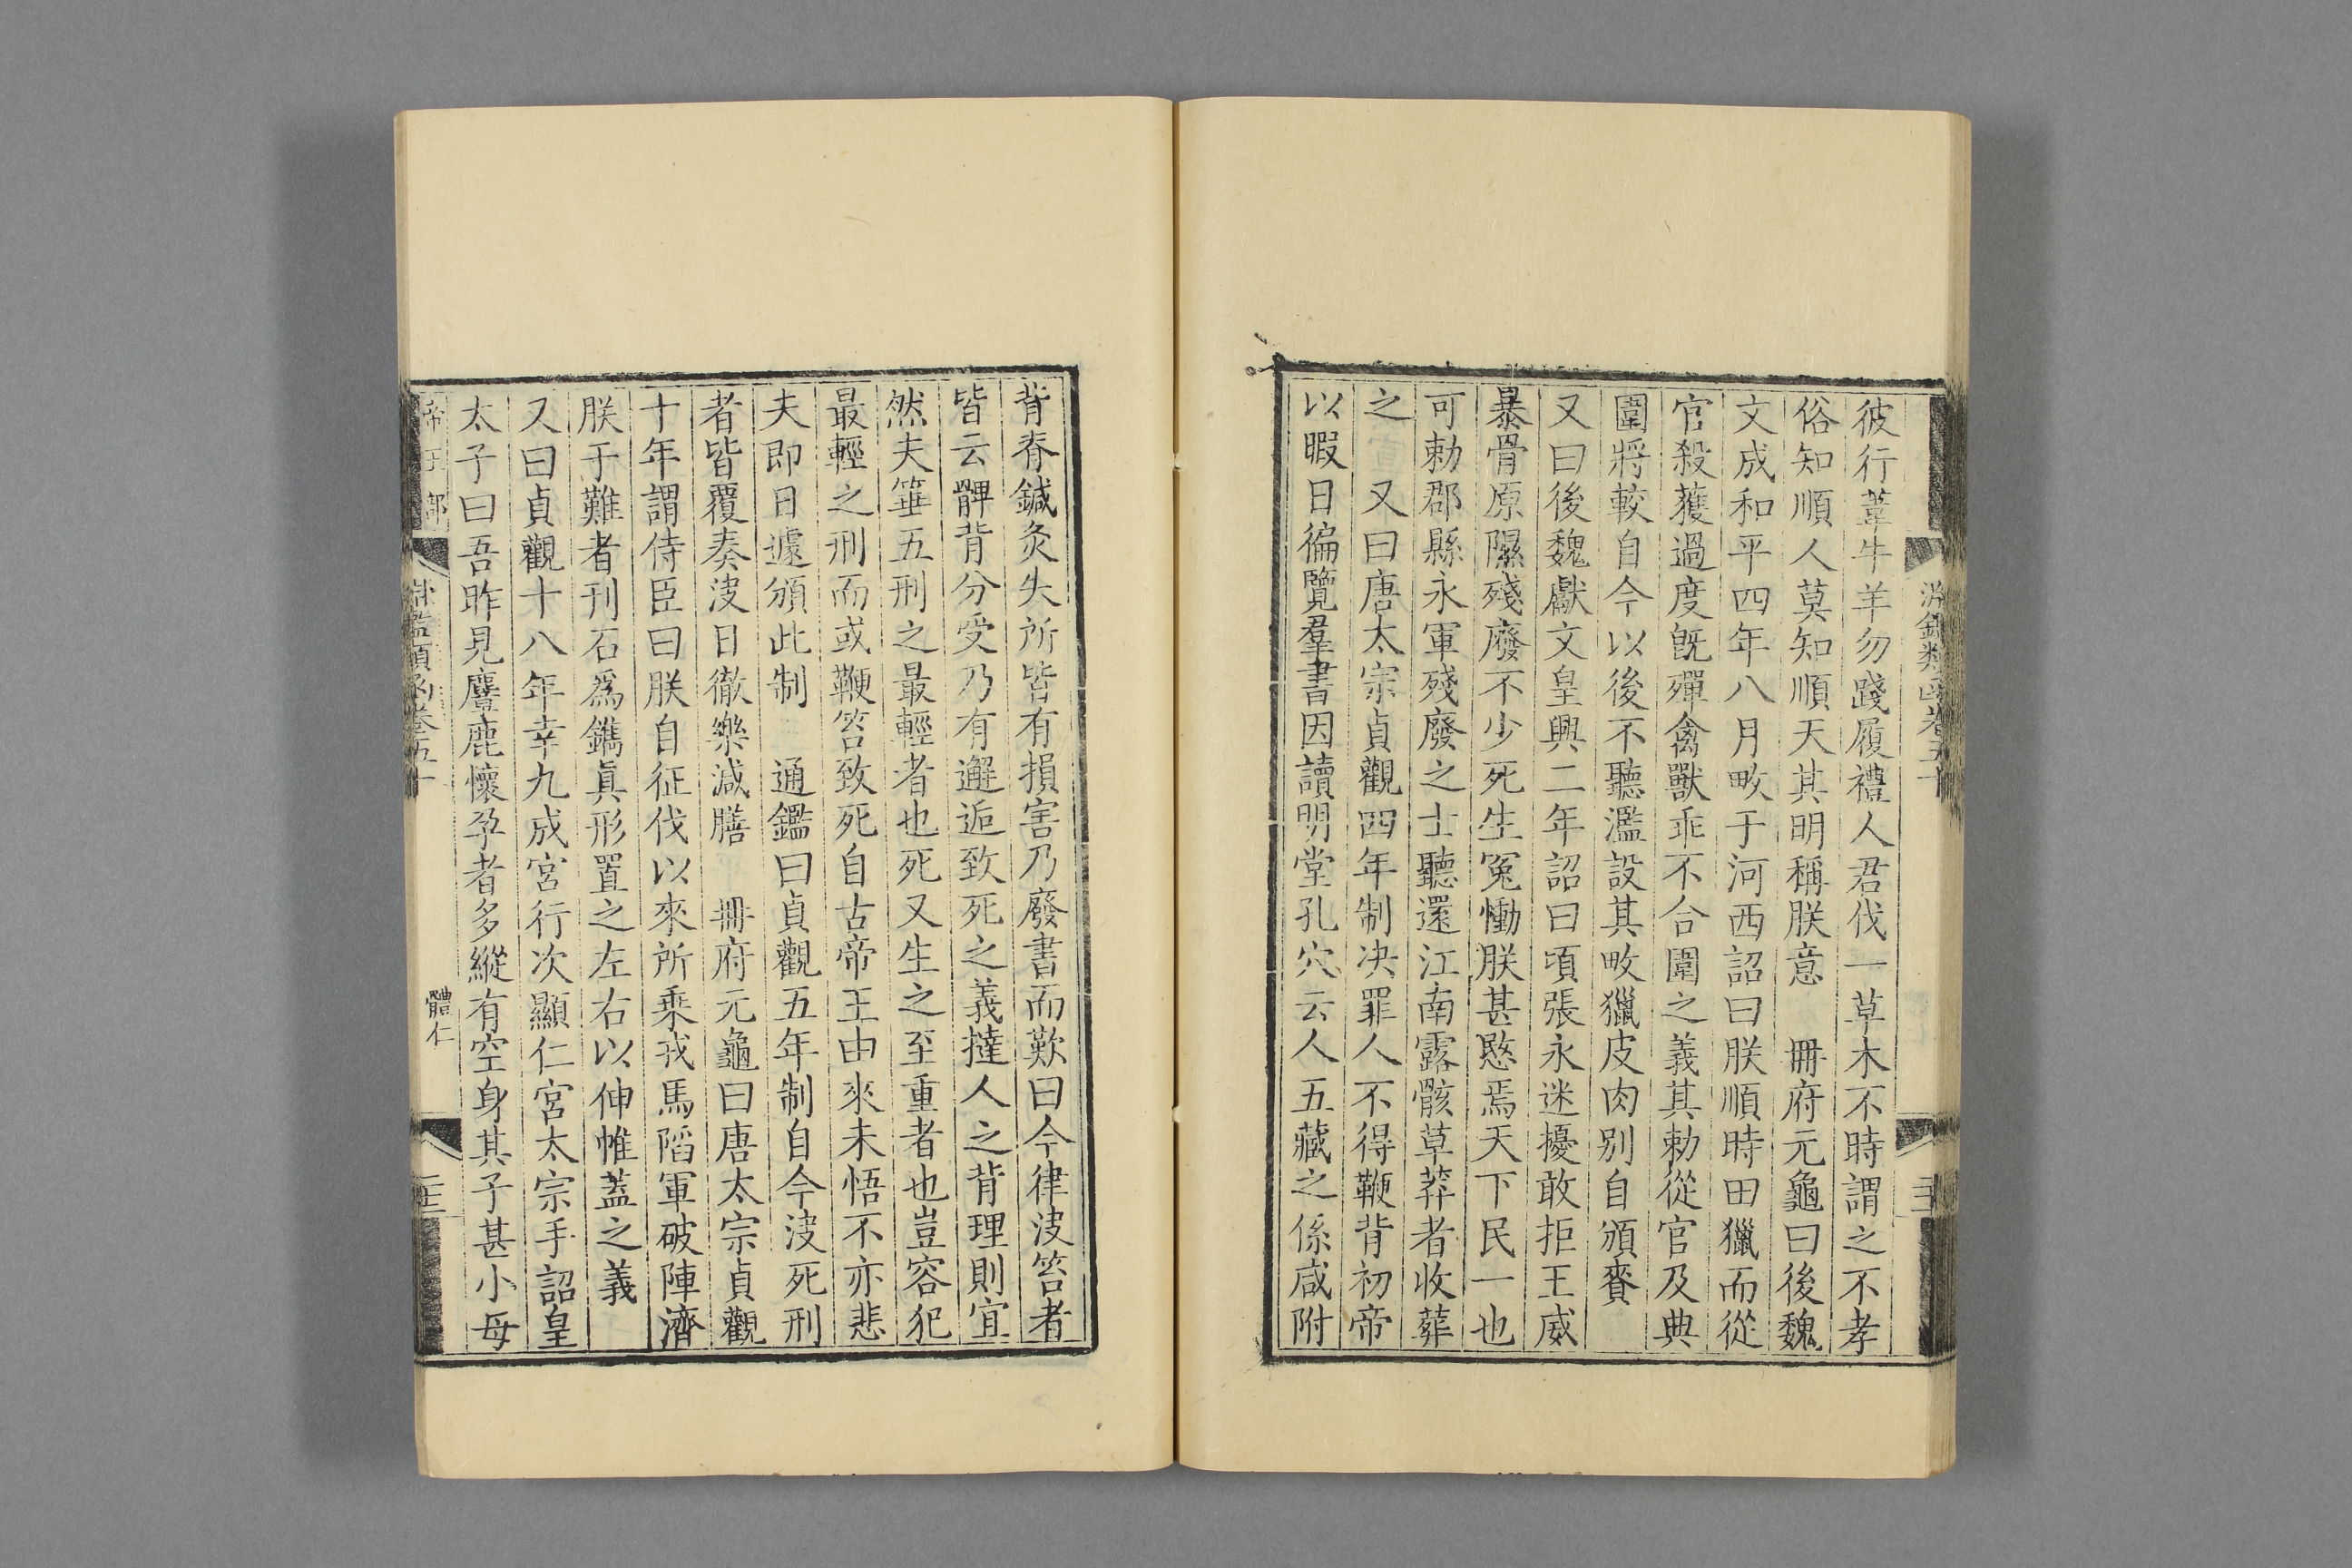 淵鑑類函卷五十
彼行葦牛羊勿踐履禮人君伐一草木不時謂之不孝
俗知順人莫知順天其明稱朕意　冊府元龜曰後魏
文成和平四年八月畋于河西詔曰朕順時田獵而從
官殺獲過度旣殫禽獸乖不合圍之義其勅從官及典
圍將較自今以後不聽濫設其畋獵皮肉别自頒賚
又曰後魏獻文皇興二年詔曰頃張永迷擾敢拒王威
暴骨原隰殘廢不少死生冤慟朕甚愍焉天下民一也
可勅郡縣永軍殘廢之士聽還江南露骸草莽者收葬
之　又曰唐太宗貞觀四年制决罪人不得鞭背初帝
以暇日徧覽羣書因讀明堂孔穴云人五藏之係咸附
背脊鍼灸失所皆有損害乃廢書而歎曰今律决笞者
皆云髀背分受乃有邂逅致死之義撻人之背理則宜
然夫箠五刑之最輕者也死又生之至重者也豈容犯
最輕之刑而或鞭笞致死自古帝王由來未悟不亦悲
夫即日遽頒此制　通鑑曰貞觀五年制自今决死刑
者皆覆奏决日徹樂減膳　冊府元龜曰唐太宗貞觀
十年謂侍臣曰朕自征伐以來所乘戎馬陷軍破陣濟
朕于難者刊石爲鐫眞形置之左右以伸帷蓋之義
又曰貞觀十八年幸九成宮行次顯仁宮太宗手詔皇
太子曰吾昨見麞鹿懷孕者多縱有空身其子甚小母
帝王部　淵鑑類函卷五十　體仁